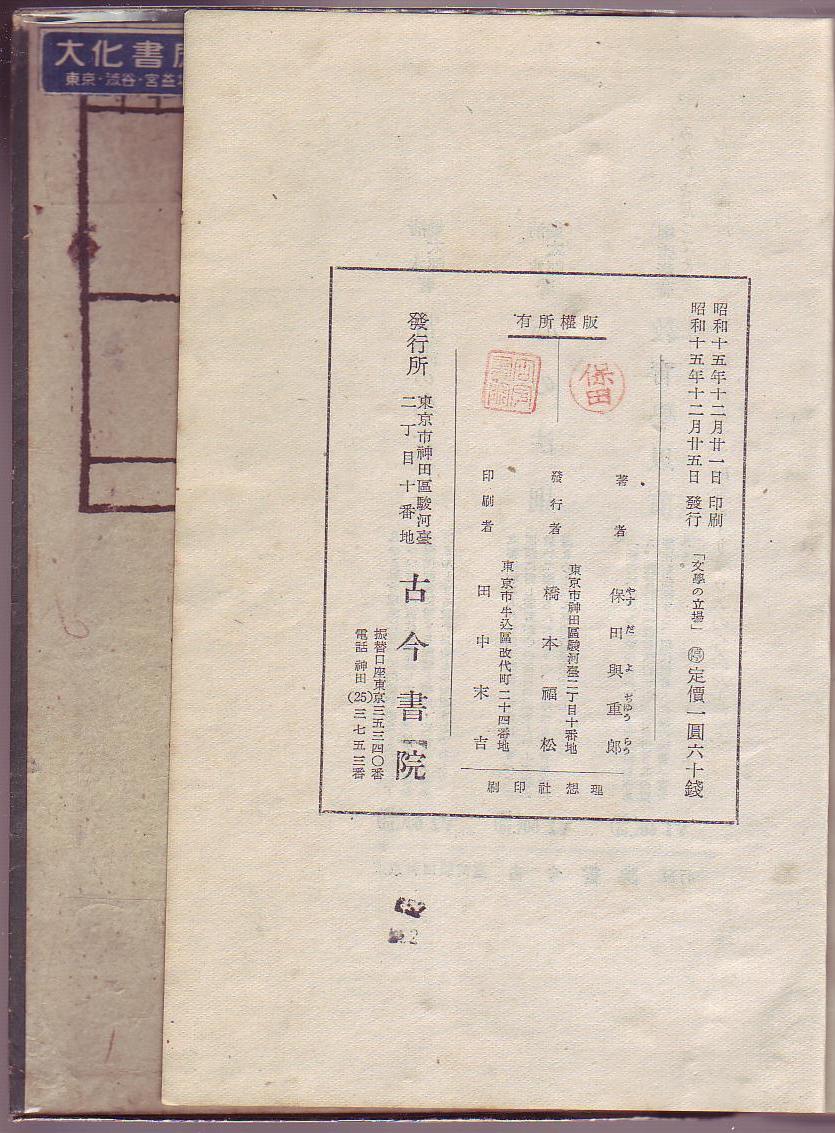 大化書
東京・渋谷・宮益
昭和十五年十二月廿一日 印刷
昭和十五年十二月廿五日 發行
「文學の立場」
停 定價一圓六十錢
版權所有
保田
著者 保田與重郎
やす だ よ ぢゆう らう
發行者
東京市神田區駿河臺二丁目十番地
橋本福松
印刷者
東京市牛込區改代町二十四番地
田中末吉
理想社印刷
發行所
東京市神田區駿河臺
二丁目十番地
古今書院
振替口座東京三五三四〇番
電話 神田(25)三七五三番